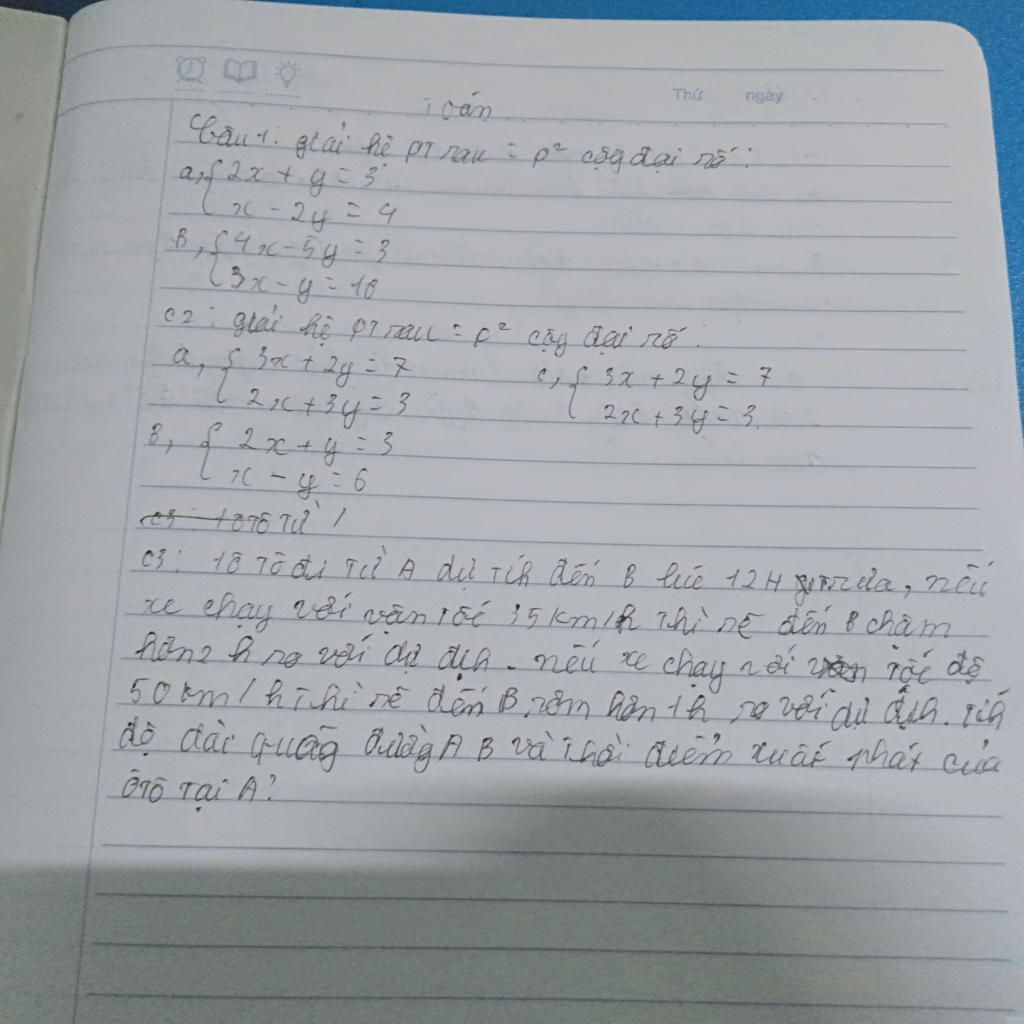 Thứ ngày
Toán
Câu 1: giải hệ PT sau = p² cộg đại số:
a, { 2x + y = 3
x - 2y = 4
B, { 4x - 5y = 3
3x - y = 16
c2: giải hệ PT sau = p² cộg đại số:
a, { 3x + 2y = 7 c, { 3x + 2y = 7
2x + 3y = 3 2x + 3y = 3
B, { 2x + y = 3
x - y = 6
c3: 1 ô tô từ
c3: 1 ô tô đi từ A dự tíh đến B lúc 12H trưa, nếu
xe chạy với vận tốc 35km/h thì sẽ đến B chậm
hơn 2h so với dự địh. nếu xe chạy với tốc độ
50km/h thì sẽ đến B sớm hơn 1h so với dự địh. Tíh
độ dài quãg đườg A B và thời điểm xuất phát của
ôtô tại A?